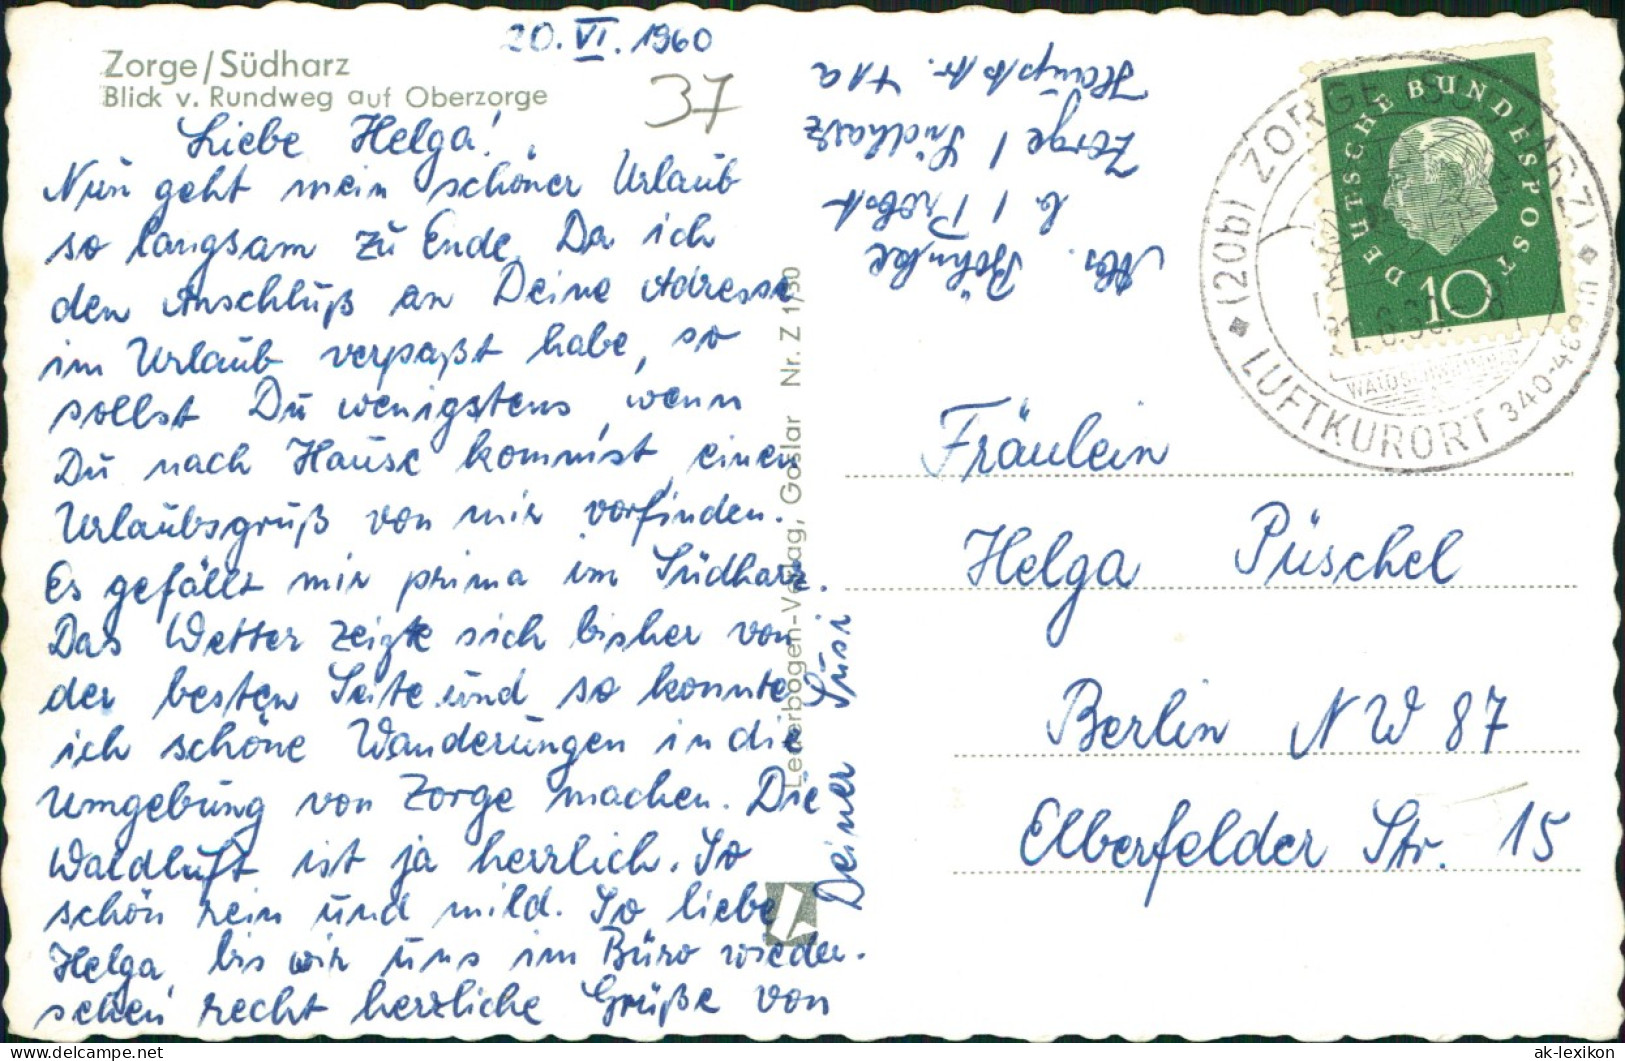 20. VI. 1960
Zorge/Südharz
Blick v. Rundweg auf Oberzorge
37
Liebe Helga!
Nun geht mein schöner Urlaub
so langsam zu Ende. Da ich
den Anschluß an Deine Adresse
im Urlaub verpaßt habe, so
sollst Du wenigstens, wenn
Du nach Hause kommst, einen
Urlaubsgruß von mir vorfinden.
Es gefällt mir prima im Südharz.
Das Wetter zeigte sich bisher von
der besten Seite und so konnte
ich schöne Wanderungen in die
Umgebung von Zorge machen. Die
Waldluft ist ja herrlich. So
schön rein und mild. So liebe
Helga, bis wir uns im Büro wieder-
sehen recht herzliche Grüße von
Deiner Susi
Abs. Böhnke
b / Probst
Zorge / Südharz
Hauptstr. 41a
Lederbogen-Verlag, Goslar Nr. Z 1/30
DEUTSCHE BUNDESPOST
10
(20b) ZORGE (SÜDHARZ)
LUFTKURORT 340-
Fräulein
Helga Püschel
Berlin NW 87
Elberfelder Str. 15
ak-lexikon